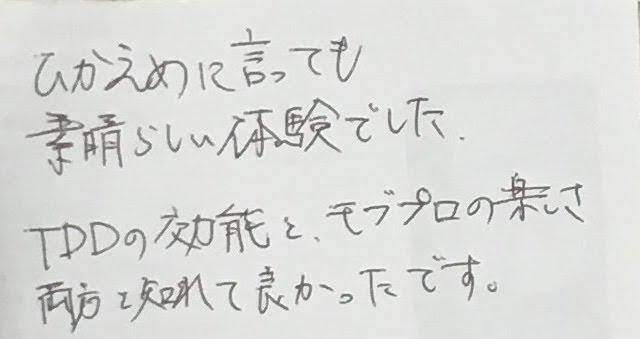 ひかえめに言っても
素晴らしい体験でした.
TDDの効能と、モブプロの楽しさ
両方と知れて良かったです。